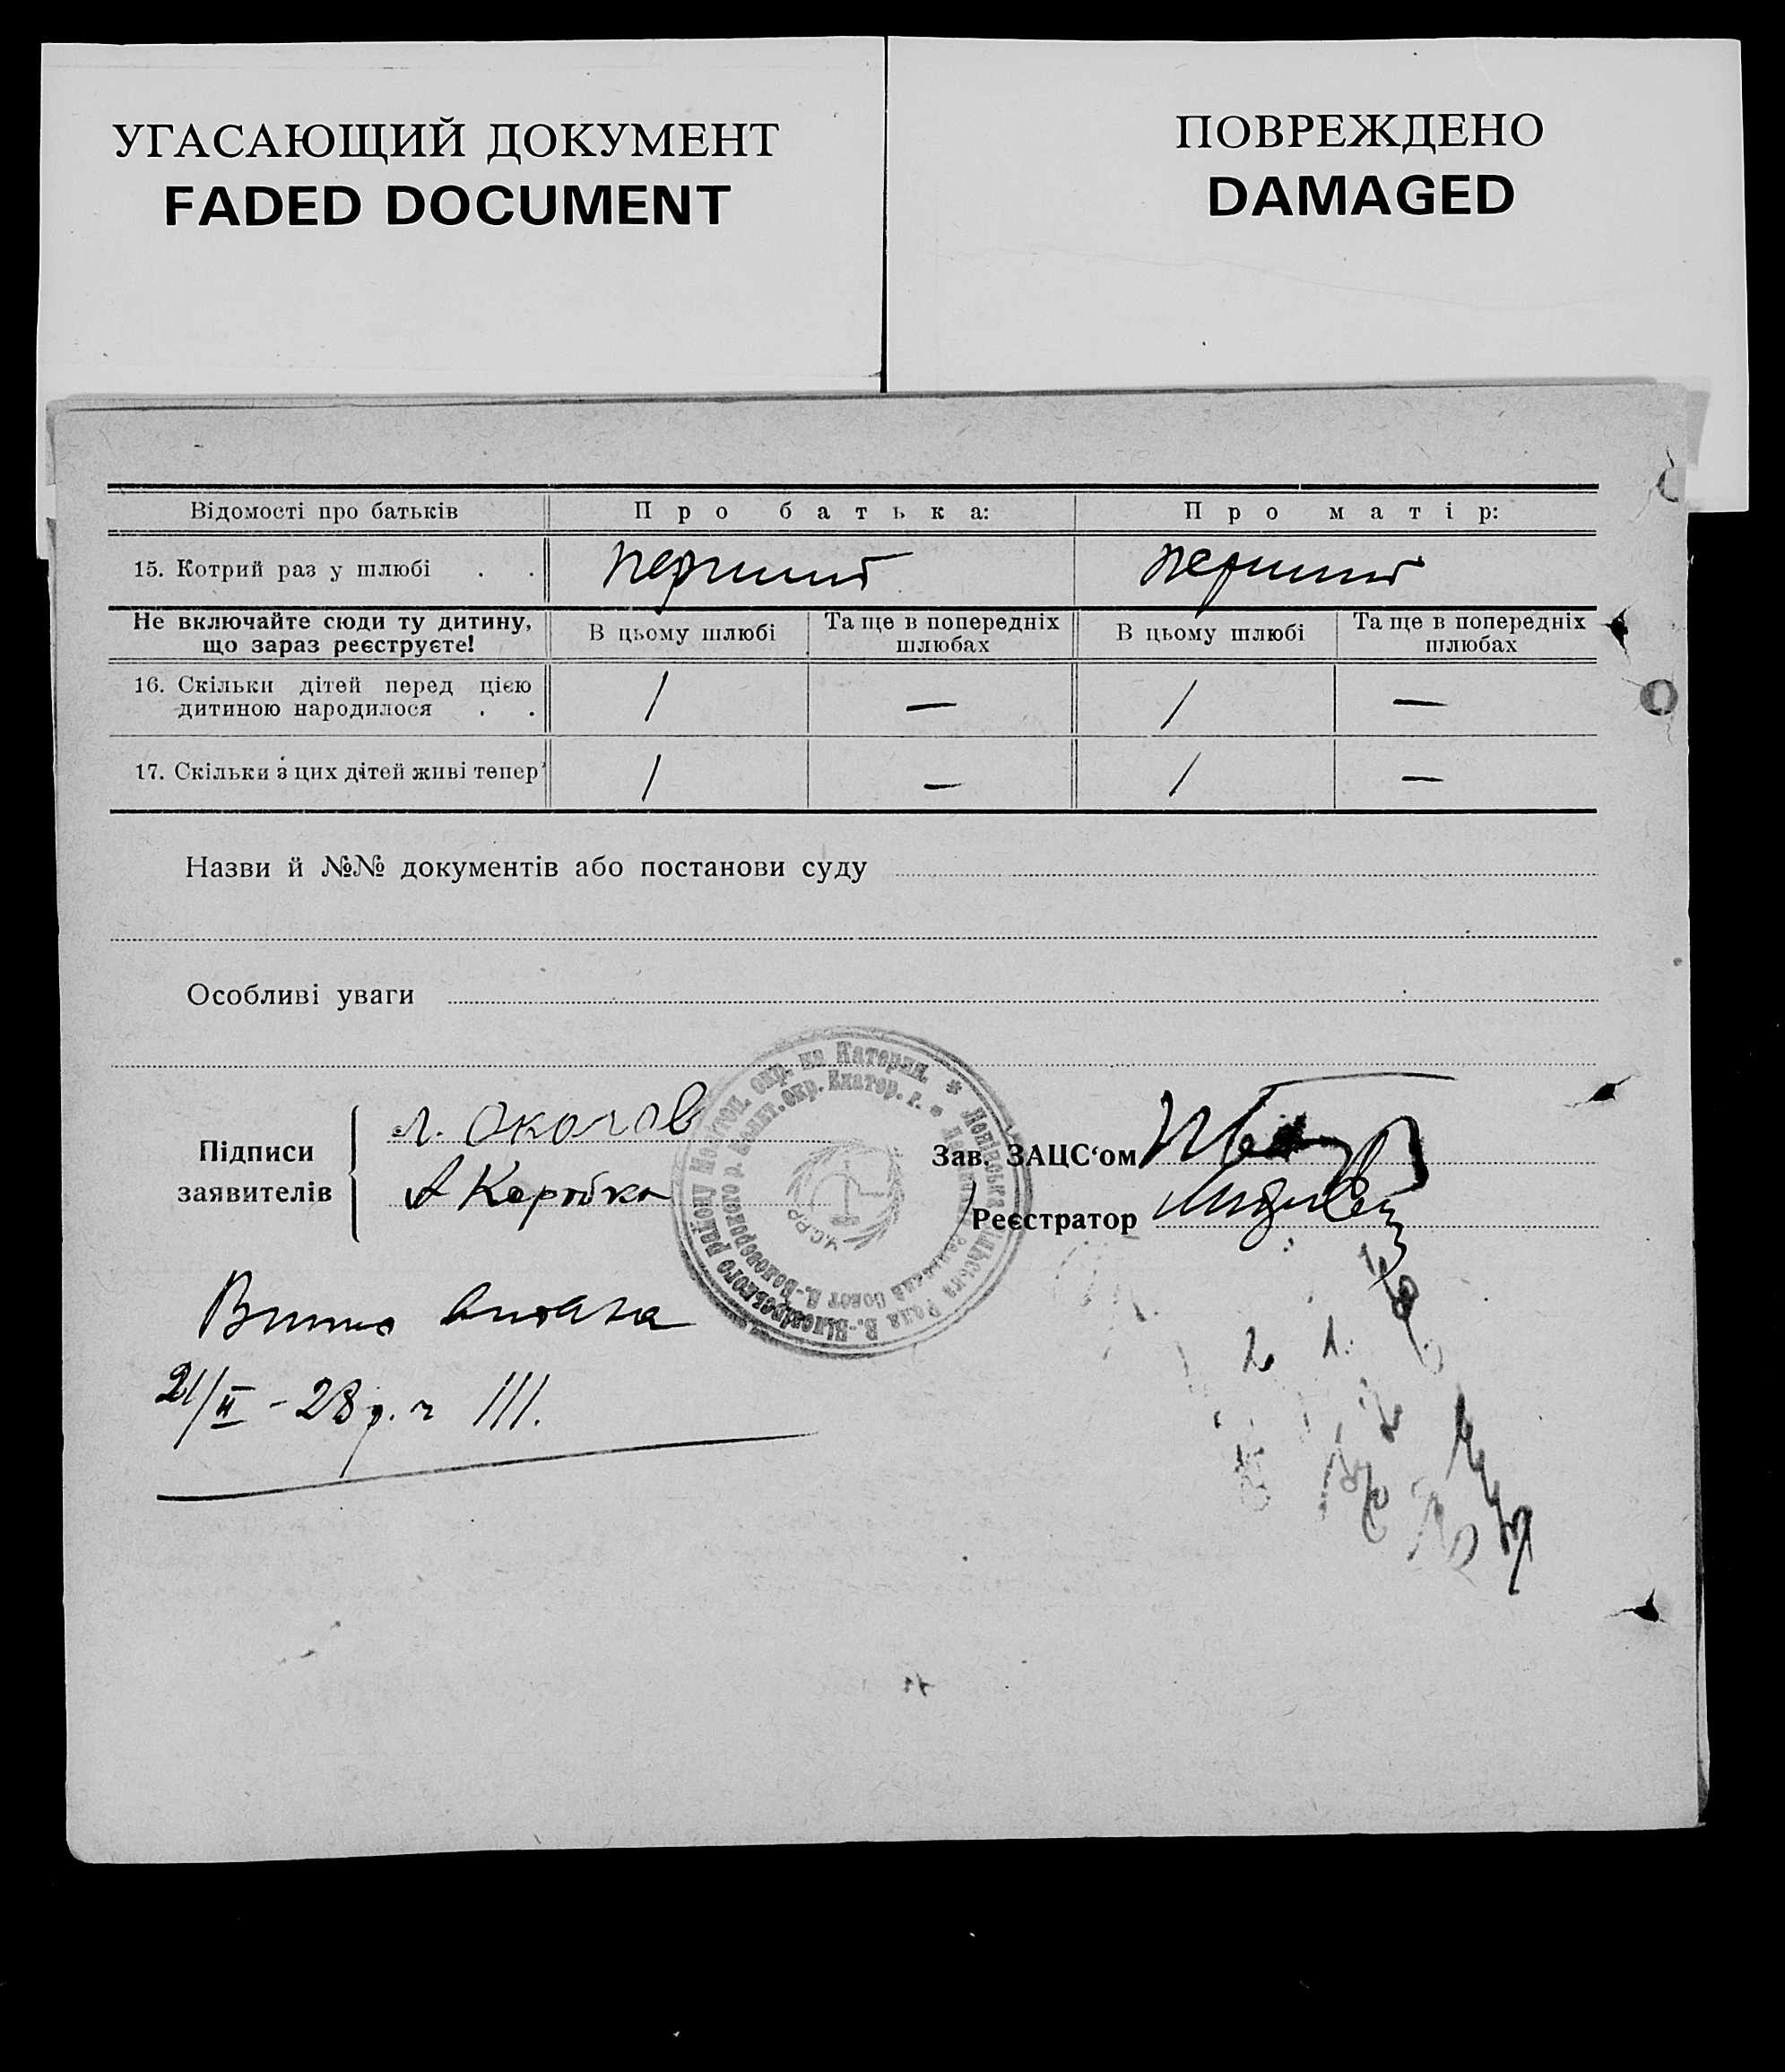 УГАСАЮЩИЙ ДОКУМЕНТ
FADED DOCUMENT
ПОВРЕЖДЕНО
DAMAGED
Відомості про батьків Про батька: Про матір:
15. Котрий раз у шлюбі . . перший перший
Не включайте сюди ту дитину, що зараз реєструєте! В цьому шлюбі Та ще в попередніх шлюбах В цьому шлюбі Та ще в попередніх шлюбах
16. Скільки дітей перед цією дитиною народилося . . 1 — 1 —
17. Скільки з цих дітей живі тепер 1 — 1 —
Назви й №№ документів або постанови суду
Особливі уваги
Підписи заявителів
А Коробка
Зав. ЗАЦС‘ом
Реєстратор
окр. на Катерин. * Ленінська Сільська Рада В.-Білозірського району
окр. Екатер. г.
У.С.Р.Р.
видана
21/II - 28 р. ч 111.